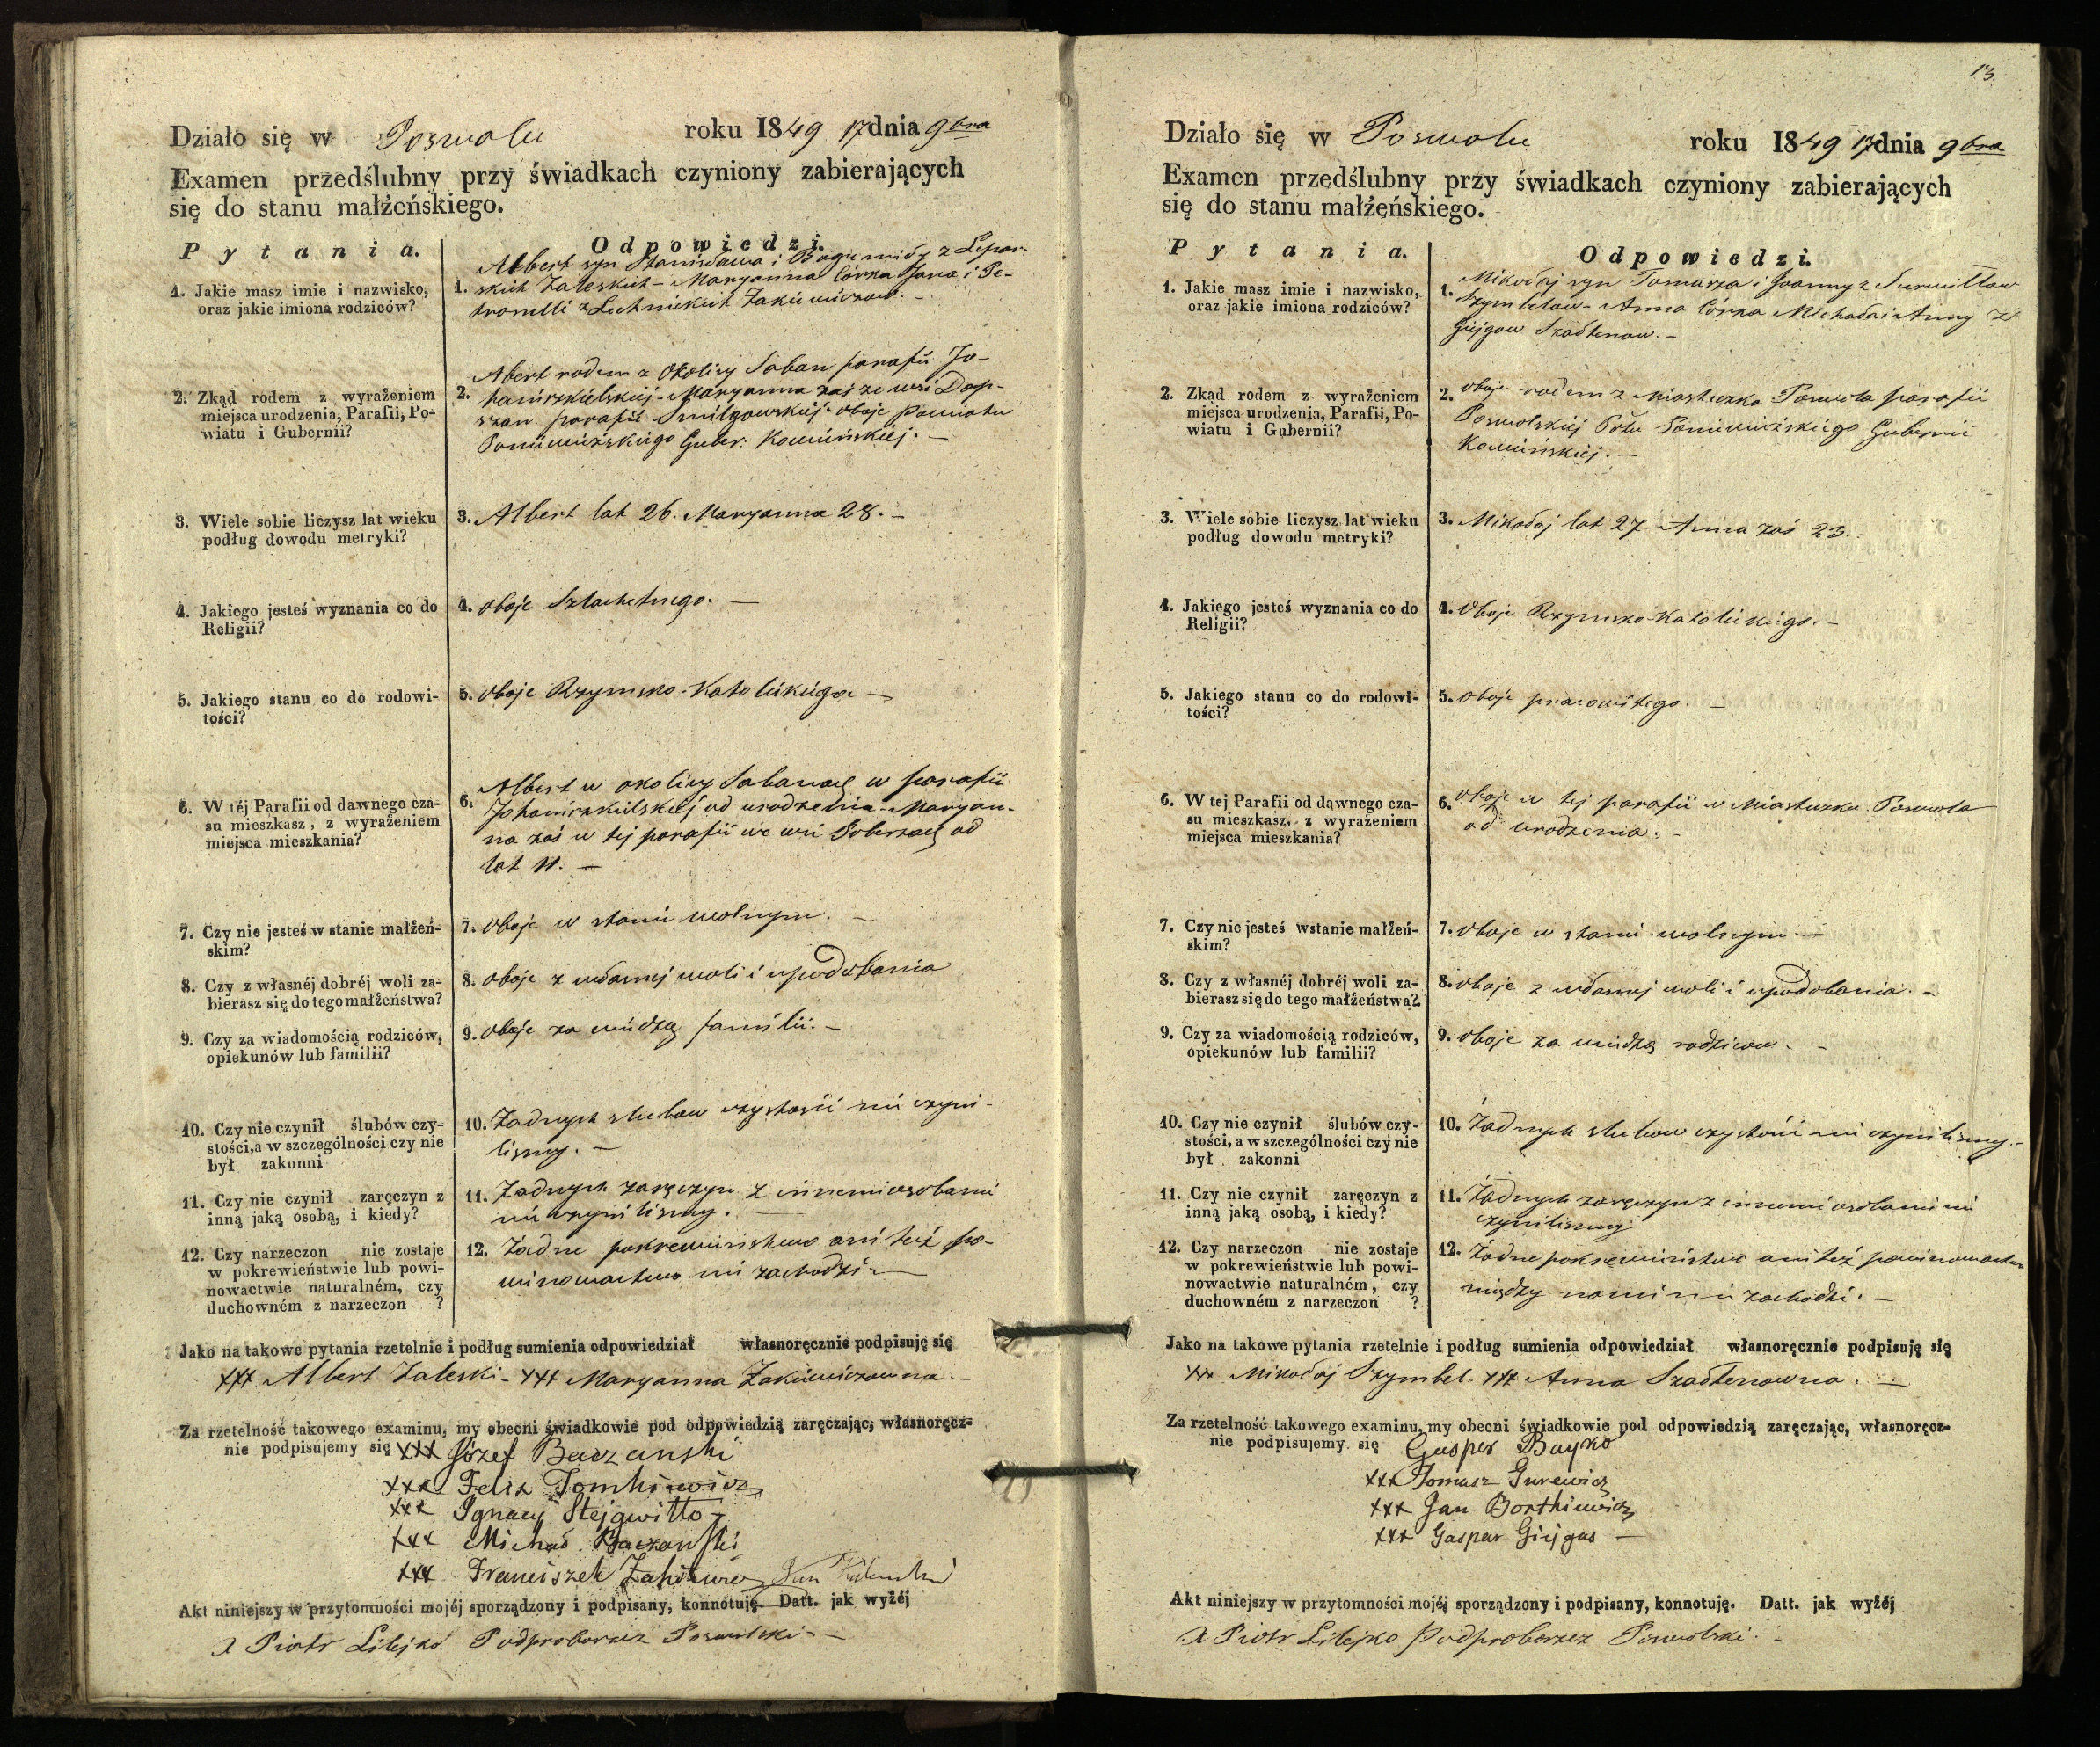 Działo się w Poswolu roku 1849 17 dnia 9bra
Examen przedślubny przy świadkach czyniony zabierających
się do stanu małżeńskiego.
Pytania.
Odpowiedzi.
1. Jakie masz imie i nazwisko,
oraz jakie imiona rodziców?
Albert syn Stanisława i Bogumiły z Lepar-
1. skich Zaleskich - Maryanna Córka Jana i Pe-
tronelli z Lechnickich Zakiewiczow. -
2. Zkąd rodem z wyrażeniem
miejsca urodzenia, Parafii, Po-
wiatu i Gubernii?
Abert rodem z Okolicy Saban parafii Jo-
2. haniszkielskiej - Maryanna zaś ze wsi
szan parafii Smilgowskiej. oboje Powiatu
Poniewieżskiego Guber: Kowieńskiej. -
3. Wiele sobie liczysz lat wieku
podług dowodu metryki?
3. Albert lat 26. Maryanna 28. -
4. Jakiego jesteś wyznania co do
Religii?
4. oboje Szlachetnego. -
5. Jakiego stanu co do rodowi-
tości?
5. oboje Rzymsko-Katolickiego -
6. W téj Parafii od dawnego cza-
su mieszkasz, z wyrażeniem
miejsca mieszkania?
Albert w okolicy Sabanach w parafii
6. Johaniszkielskiej od urodzenia - Maryan-
na zaś w tej parafii we wsi Poberzach od
lat 11. -
7. Czy nie jesteś w stanie małżeń-
skim?
7. oboje w stanie wolnym. -
8. Czy z własnéj dobréj woli za-
bierasz się do tego małżeństwa?
8. oboje z własnej woli i upodobania
9. Czy za wiadomością rodziców,
opiekunów lub familii?
9. oboje za wiedzą familii. -
10. Czy nie czynił ślubów czy-
stości, a w szczególności czy nie
był zakonni
10. Żadnych slubow czystości nie czyni-
lismy. -
11. Czy nie czynił zaręczyn z
inną jaką osobą, i kiedy?
11. Żadnych zaręczyn z innemi osobami
nie czynilismy. -
12. Czy narzeczon nie zostaje
w pokrewieństwie lub powi-
nowactwie naturalném, czy
duchowném z narzeczon ?
12. Żadne pokrewieństwo ani też po-
winowactwo nie zachodzi. -
Jako na takowe pytania rzetelnie i podług sumienia odpowiedział własnoręcznie podpisuję się
xxx Albert Zaleski - xxx Maryanna Zakiewiczowna. -
Za rzetelność takowego examinu, my obecni świadkowie pod odpowiedzią zaręczając, własnoręcz-
nie podpisujemy się xxx Józef Baczanski
xxx Felix Tomkiewicz
xxx Ignacy Stejgwitto -
xxx Michał Baczanski
xxx Franciszek Jan
Akt niniejszy w przytomności mojéj sporządzony i podpisany, konnotuję. Datt. jak wyżéj
X Piotr Lilejko Podproboszcz Poswolski -
13.
Działo się w Poswolu roku 1849 17 dnia 9bra
Examen przedślubny przy świadkach czyniony zabierających
się do stanu małżeńskiego.
Pytania.
Odpowiedzi.
1. Jakie masz imie i nazwisko,
oraz jakie imiona rodziców?
Mikołaj syn Tomasza i Joanny z Surwiłłow
1. Szymbelow - Anna Córka Michała i Anny z
Giejgow Szadlenow. -
2. Zkąd rodem z wyrażeniem
miejsca urodzenia, Parafii, Po-
wiatu i Gubernii?
2. oboje rodem z Miasteczka Poswola parafii
Poswolskiej Pttu Poniewieżskiego Gubernii
Kowieńskiej. -
3. Wiele sobie liczysz lat wieku
podług dowodu metryki?
3. Mikołaj lat 27 - Anna zaś 23. -
4. Jakiego jesteś wyznania co do
Religii?
4. Oboje Rzymsko-Katolickiego. -
5. Jakiego stanu co do rodowi-
tości?
5. oboje pracowitego. -
6. W tej Parafii od dawnego cza-
su mieszkasz, z wyrażeniem
miejsca mieszkania?
6. Oboje w tej parafii w Miasteczku Poswola
od urodzenia. -
7. Czy nie jesteś wstanie małżeń-
skim?
7. oboje w stanie wolnym -
8. Czy z własnéj dobréj woli za-
bierasz się do tego małżeństwa?
8. oboje z własnej woli i upodobania. -
9. Czy za wiadomością rodziców,
opiekunów lub familii?
9. oboje za wiedzą rodzicow. -
10. Czy nie czynił ślubów czy-
stości, a w szczególności czy nie
był zakonni
10. Żadnych slubow czystości nie czynilismy. -
11. Czy nie czynił zaręczyn z
inną jaką osobą, i kiedy?
11. Żadnych zaręczyn z innemi osobami nie
czynilismy
12. Czy narzeczon nie zostaje
w pokrewieństwie lub powi-
nowactwie naturalném, czy
duchowném z narzeczon ?
12. Żadne pokrewieństwo ani też powinowactwo
między nami nie zachodzi. -
Jako na takowe pytania rzetelnie i podług sumienia odpowiedział własnoręcznie podpisuję się
xxx Mikołaj Szymbel - xxx Anna Szadlenowna. -
Za rzetelność takowego examinu, my obecni świadkowie pod odpowiedzią zaręczając, własnoręcz-
nie podpisujemy się Gasper Bayko
xxx Tomasz Gurewicz
xxx Jan Borthiewicz
xxx Gasper Giejgas -
Akt niniejszy w przytomności mojéj sporządzony i podpisany, konnotuję. Datt. jak wyżéj
X Piotr Lilejko Podproboszcz Poswolski. -